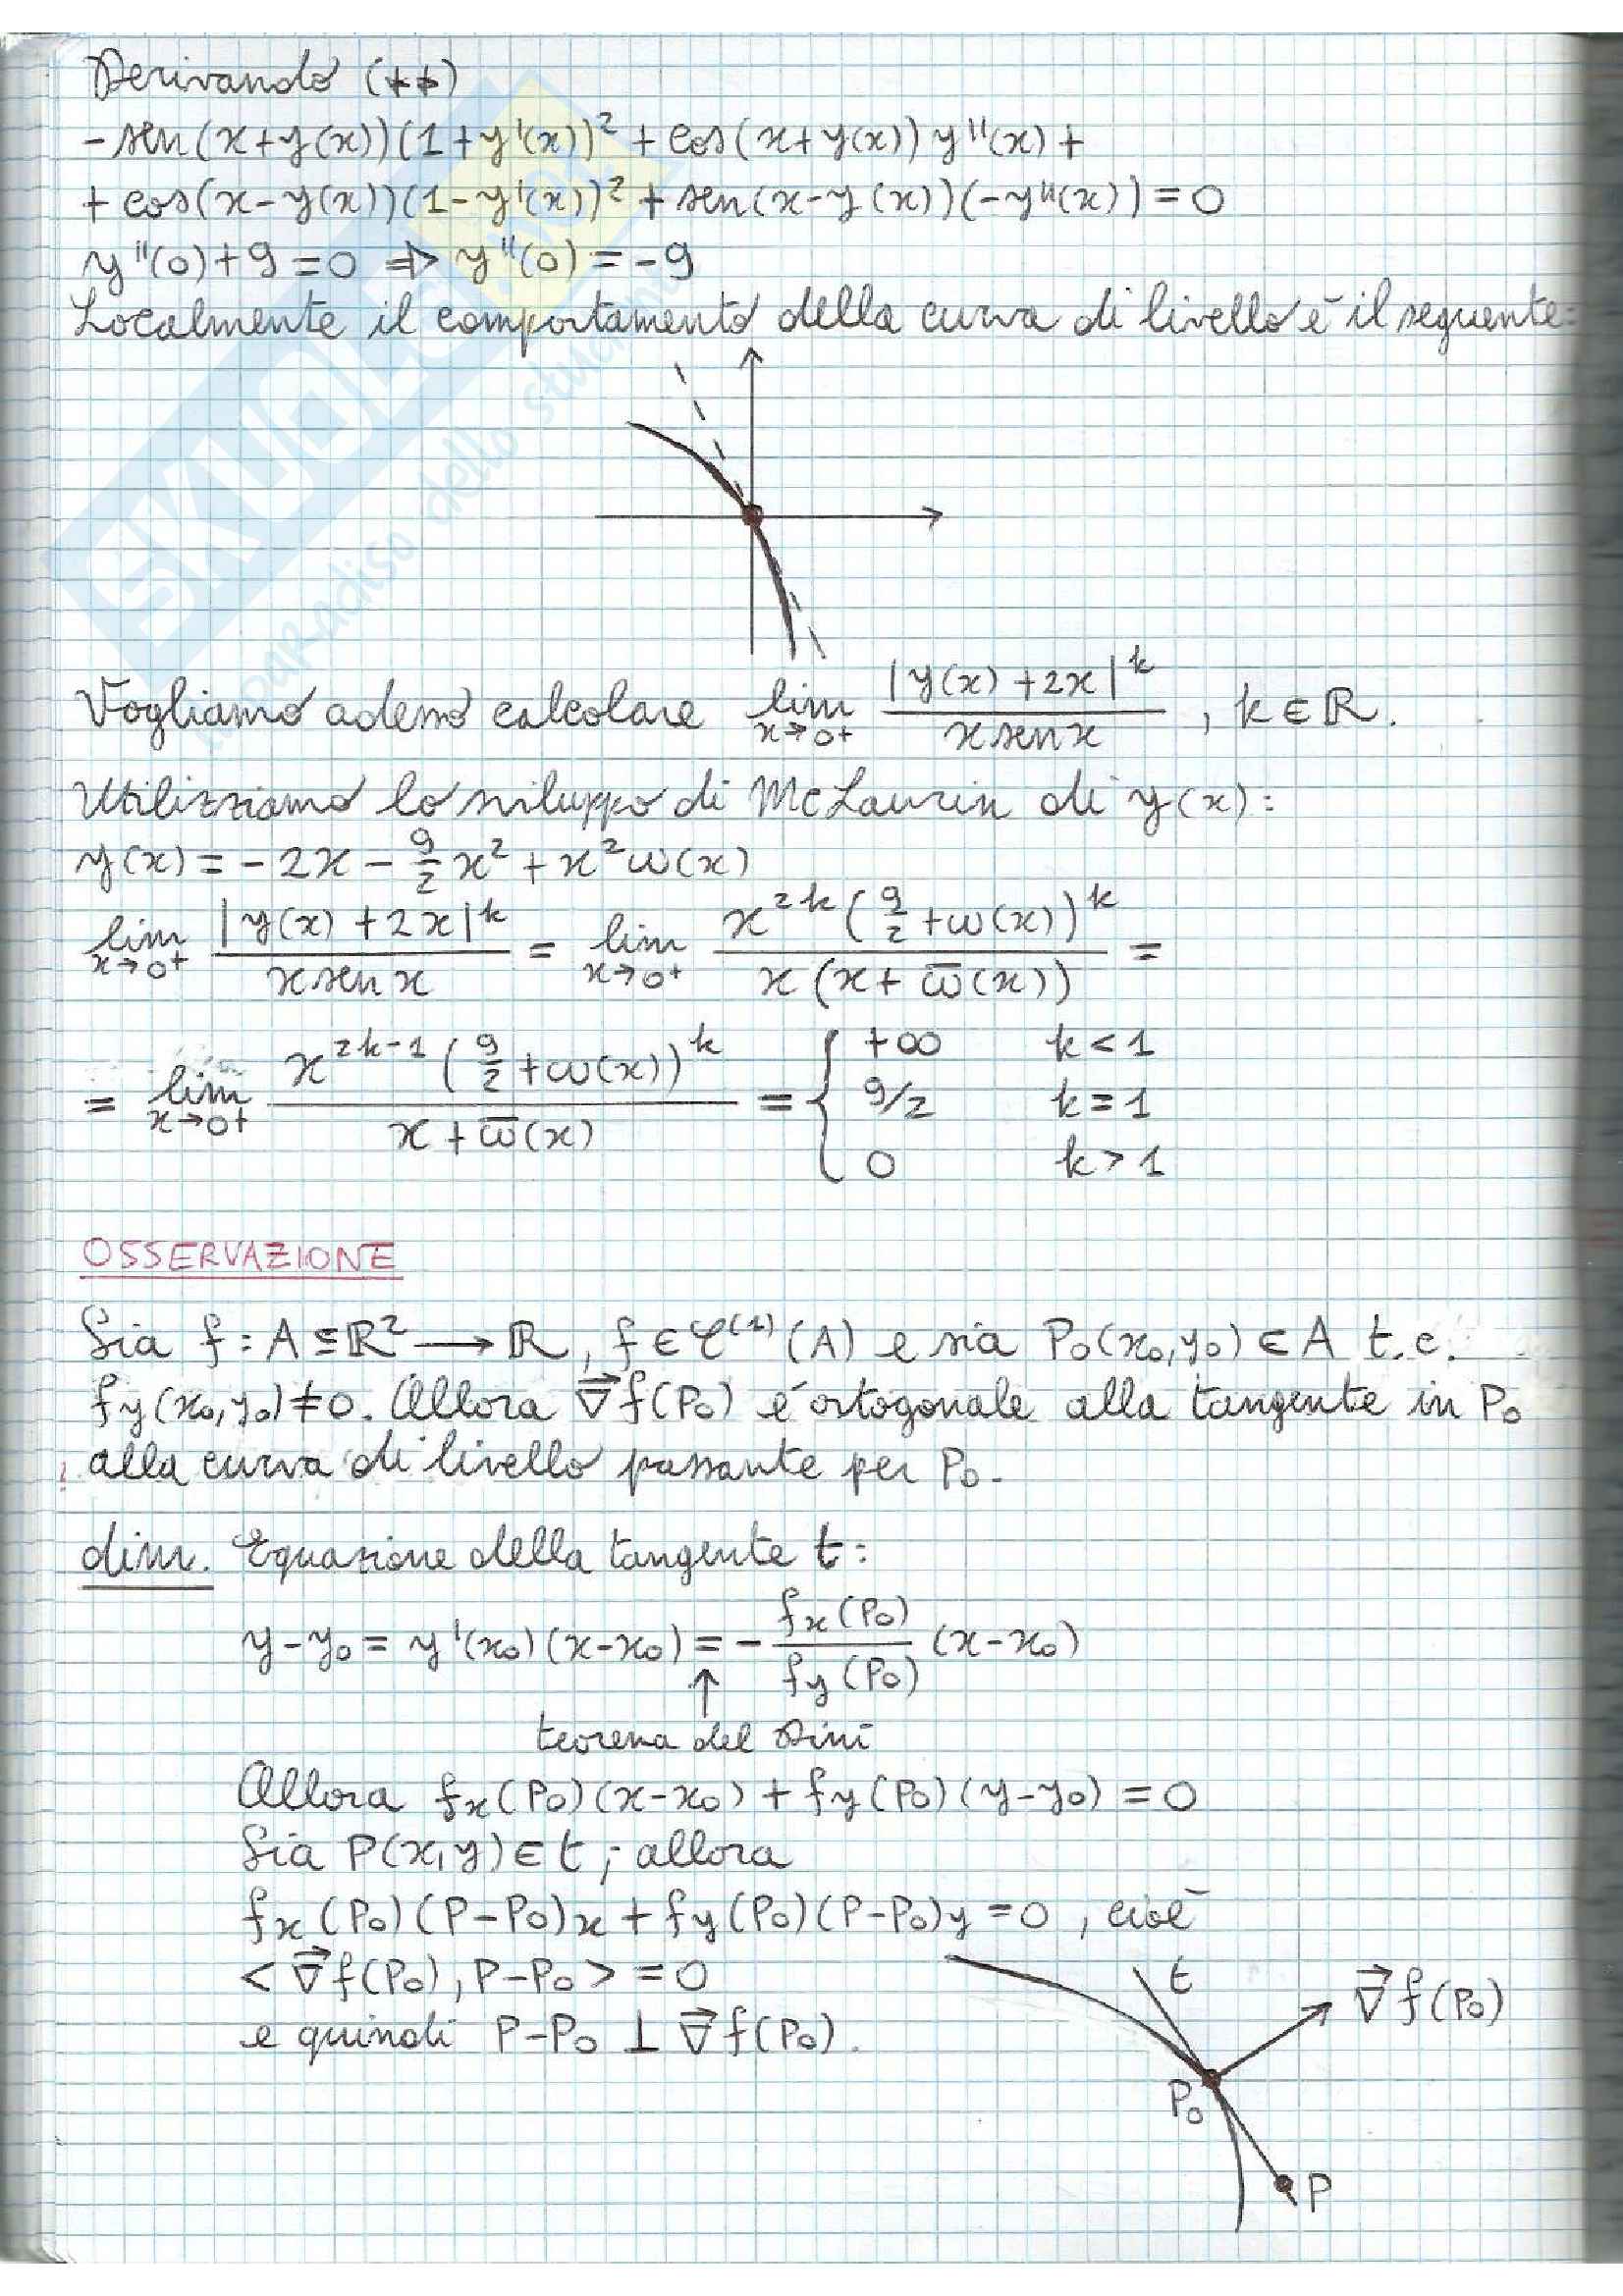 Derivando (**)
-sen(x+y(x))(1+y'(x))² + cos(x+y(x)) y''(x) +
+ cos(x-y(x))(1-y'(x))² + sen(x-y(x))(-y''(x)) = 0
y''(0)+9=0 ⇒ y''(0) = -9
Localmente il comportamento della curva di livello è il seguente:
Vogliamo adesso calcolare lim x→0+ |y(x)+2x|^k / x sen x , k∈ℝ.
Utilizziamo lo sviluppo di McLaurin di y(x):
y(x) = -2x - 9/2 x² + x²ω(x)
lim x→0+ |y(x)+2x|^k / x sen x = lim x→0+ x^2k (9/2 + ω(x))^k / x(x+ω̅(x)) =
= lim x→0+ x^2k-1 (9/2 + ω(x))^k / x+ω̅(x) = { +∞ k<1
9/2 k=1
0 k>1
OSSERVAZIONE
Sia f: A⊆ℝ² → ℝ, f∈C^(1)(A) e sia P₀(x₀,y₀)∈A t.c.
fy(x₀,y₀)≠0. Allora ∇⃗f(P₀) è ortogonale alla tangente in P₀
alla curva di livello passante per P₀.
dim. Equazione della tangente t:
y-y₀ = y'(x₀)(x-x₀) = - fx(P₀)/fy(P₀) (x-x₀)
↑
teorema del Dini
Allora fx(P₀)(x-x₀) + fy(P₀)(y-y₀) = 0
Sia P(x,y)∈t; allora
fx(P₀)(P-P₀)x + fy(P₀)(P-P₀)y = 0, cioè
<∇⃗f(P₀), P-P₀> = 0
e quindi P-P₀ ⊥ ∇⃗f(P₀).
t
∇⃗f(P₀)
P₀
P
SKUOLA.NET
il paradiso dello studente